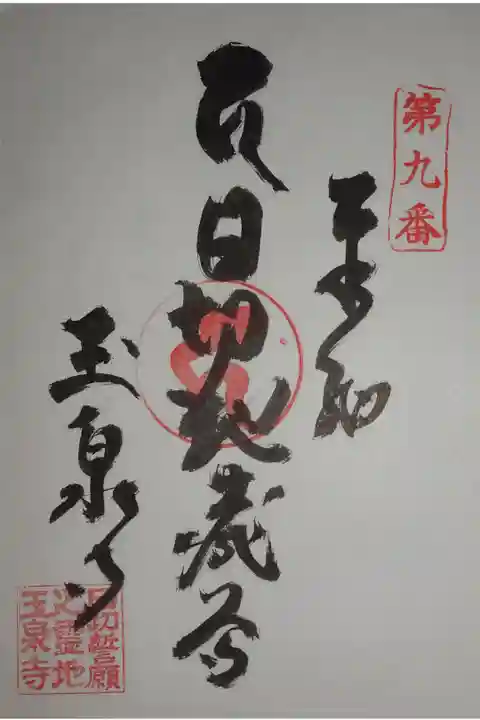 第九番
奉納
日切地蔵尊
玉泉寺
日切誓願
之霊地
玉泉寺